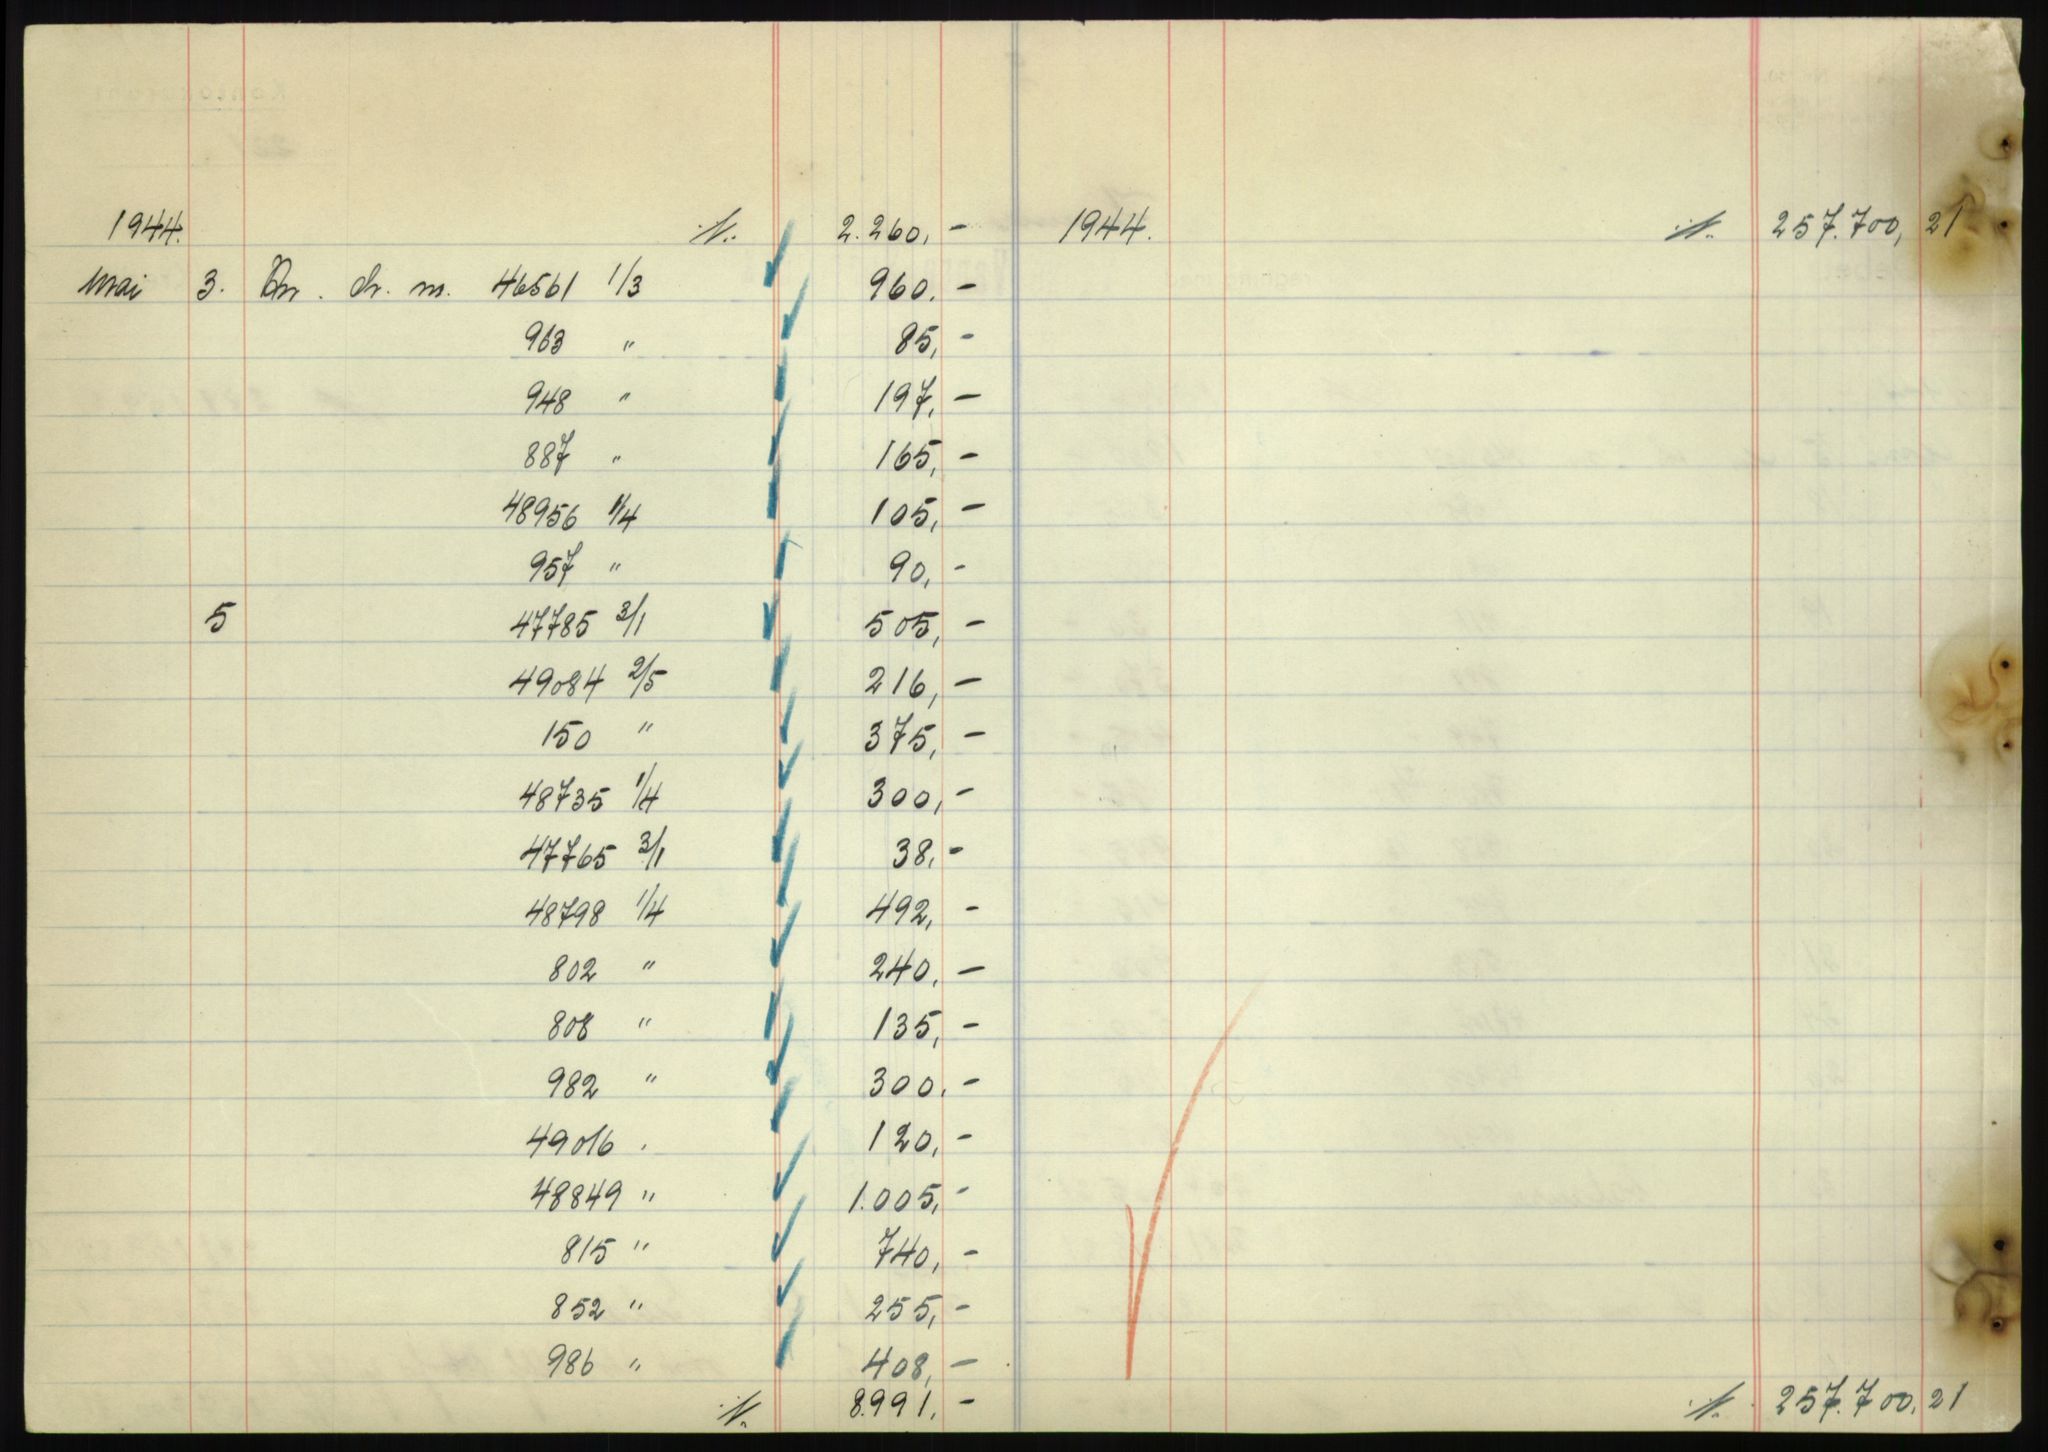 1944. ·/· 2.260,-
mai 3. An. dr. m. 46561 1/3 960.-
963 " 85,-
948 " 197,-
887 " 165,-
48956 1/4 105,-
957 " 90,-
5 47785 3/1 505,-
49084 2/5 216,-
150 " 375,-
48735 1/4 300,-
47765 3/1 38,-
48798 1/4 492,-
802 " 240,-
808 " 135,-
982 " 300.-
49016 . 120,-
48849 " 1.005,-
815 " 740,-
852 " 255,-
986 " 408,-
·/· 8.991,-
1944. ·/· 257.700,21
·/· 257.700,21